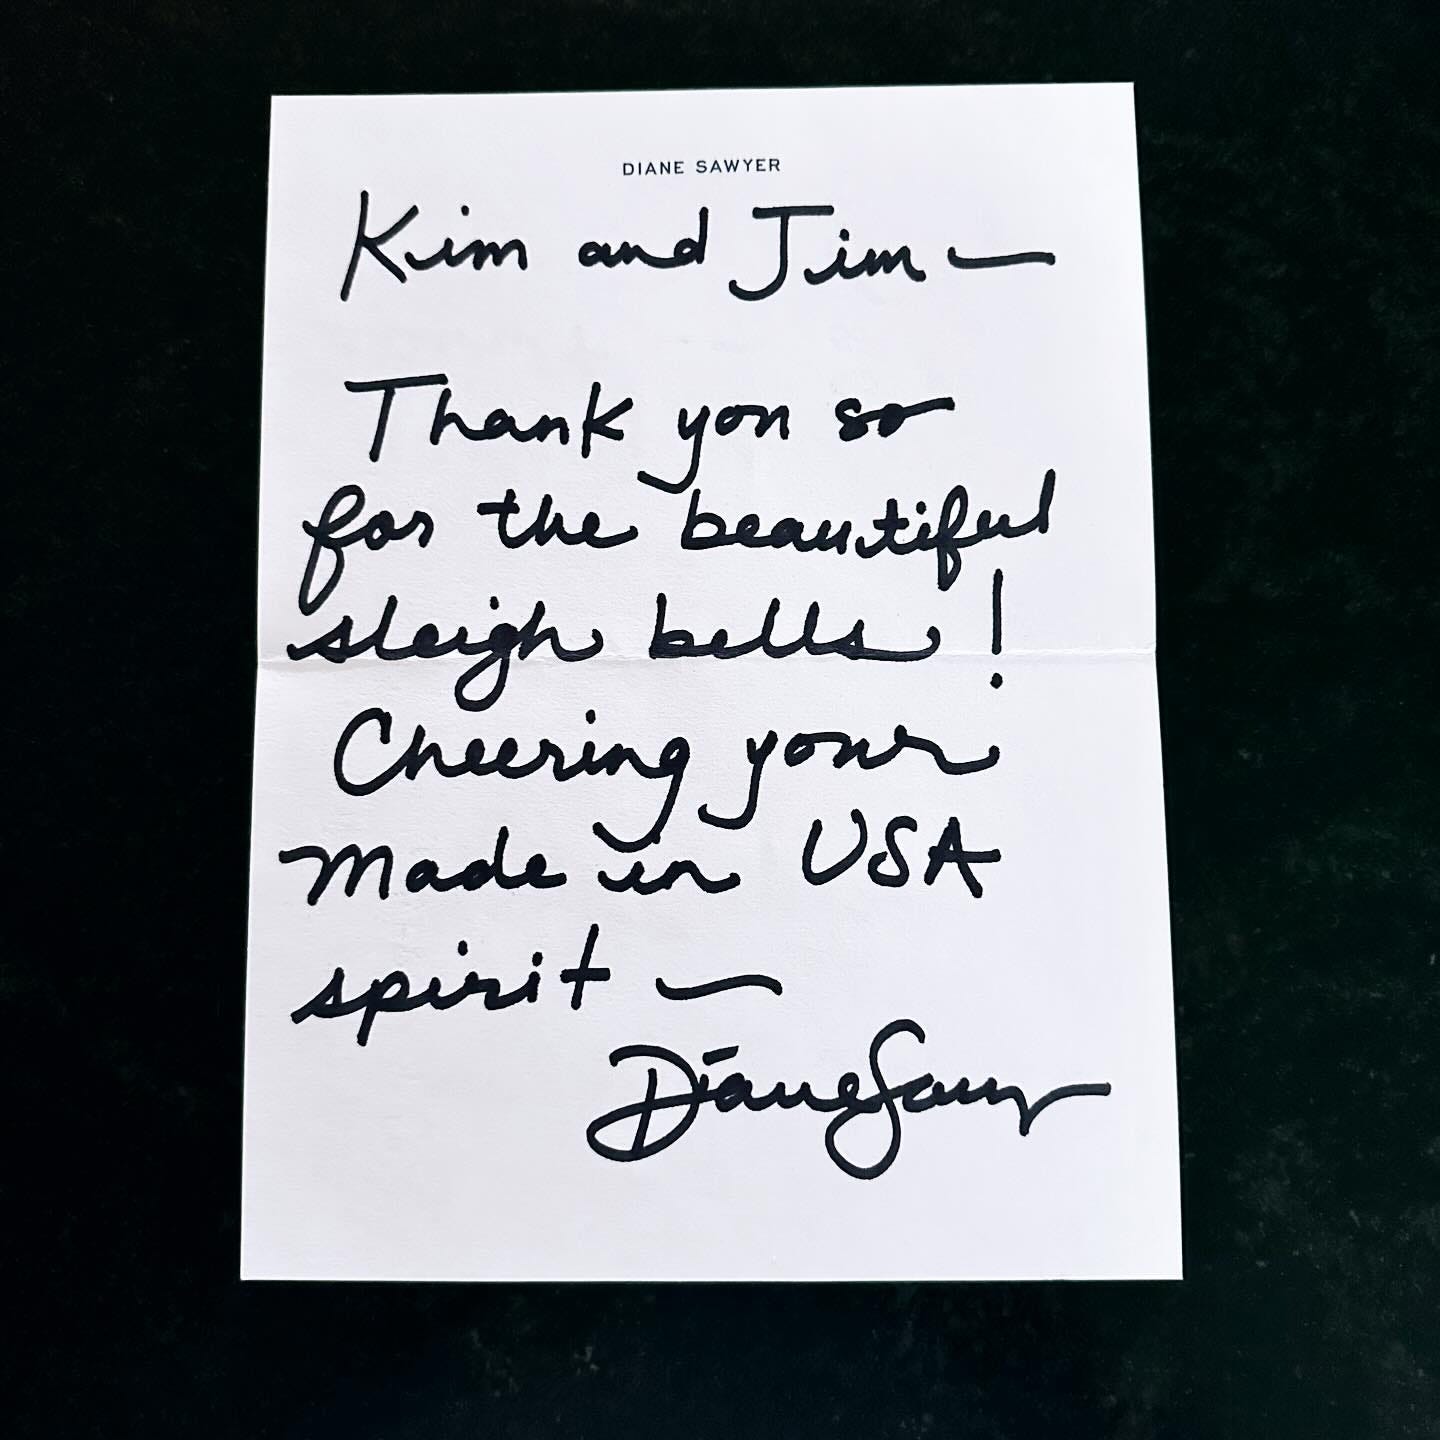 DIANE SAWYER
Kim and Jim —
Thank you so
for the beautiful
sleigh bells!
Cheering your
Made in USA
spirit —
Diane Sawyer